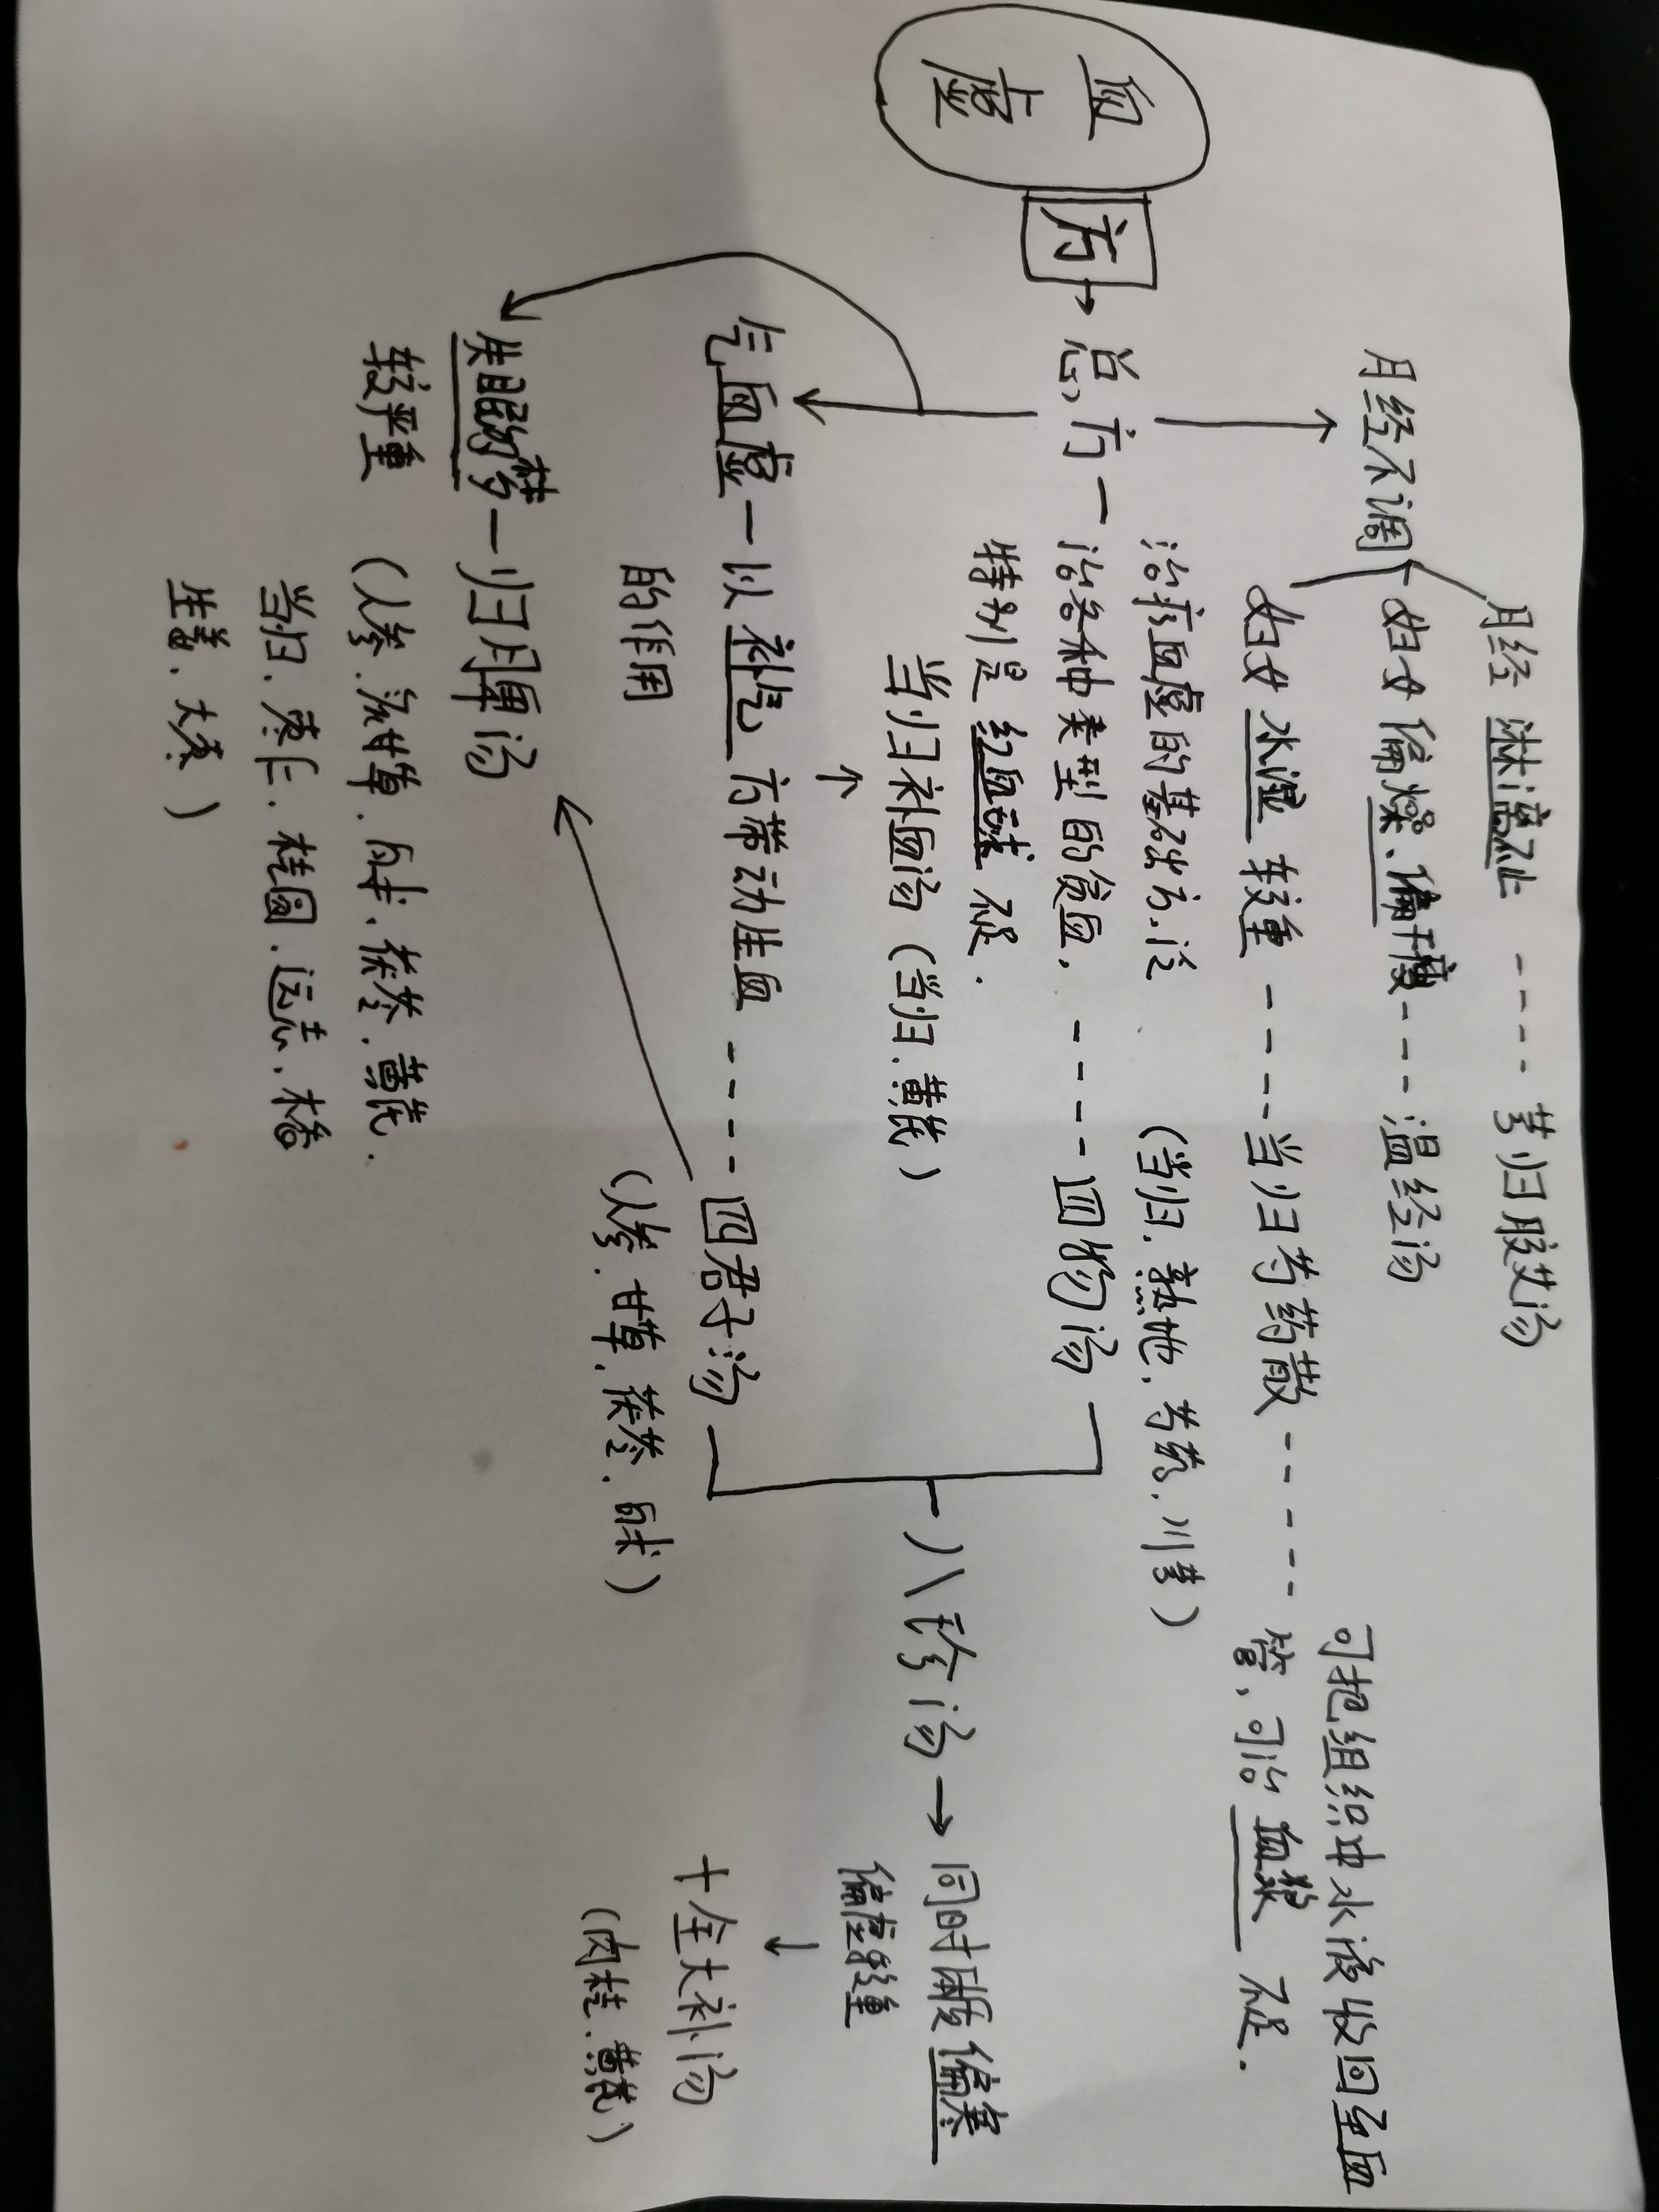 血虚
方
→ 总方 —
月经不调
月经淋漓不止 ---- 芎归胶艾汤
妇女偏燥、偏干瘦 ---- 温经汤
妇女水湿较重 ---- 当归芍药散 -----
可把组织中水液收回至血
管,可治血浆不足.
治疗血虚的基础方,泛
治各种类型的贫血, ---- 四物汤
特别是红血球不足.
(当归.熟地.芍药.川芎)
当归补血汤(当归.黄芪)
↑
气血虚 — 以补气方带动生血 ---- 四君子汤
的作用
(人参.甘草.茯苓.白术)
八珍汤 → 同时体质偏寒
偏虚较重
↓
十全大补汤
(肉桂.黄芪)
失眠多梦 — 归脾汤
较严重
(人参.炙甘草.白术.茯苓.黄芪.
当归.枣仁.桂圆.远志.木香
生姜.大枣)